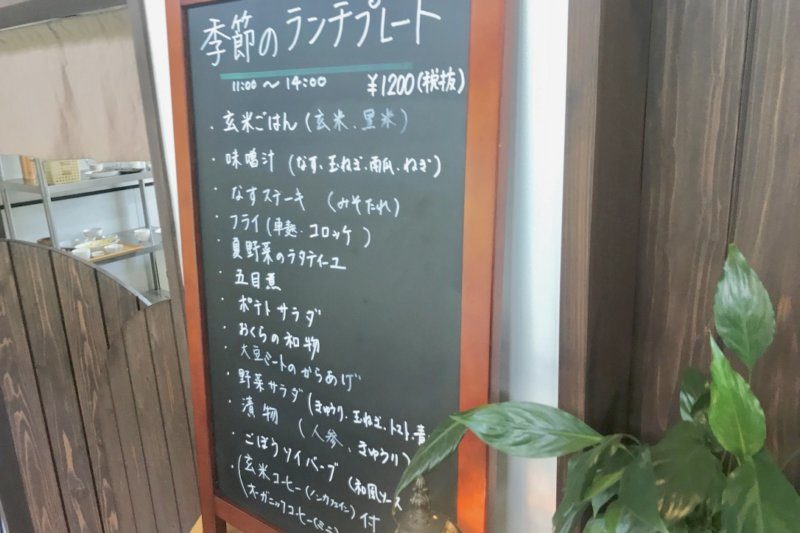 季節のランチプレート
11:00 〜 14:00 ¥1200(税抜)
・玄米ごはん (玄米、黒米)
・味噌汁 (なす、玉ねぎ、南瓜、ねぎ)
・なすステーキ (みそたれ)
・フライ (車麩・コロッケ)
・夏野菜のラタティーユ
・五目煮
・ポテトサラダ
・おくらの和物
・大豆ミートのからあげ
・野菜サラダ (きゅうり、玉ねぎ、トマト、青
・漬物 (人参、きゅうり)
・ごぼうソイバーグ (和風ソース
・(玄米コーヒー (ノンカフェイン) 付
オーガニックコーヒー (ミニ)